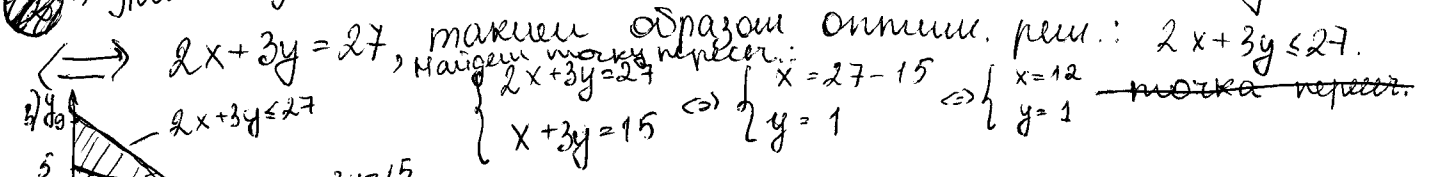 ⇔ 2x+3y=27, таким образом оптим. реш.: 2x+3y≤27.
Найдем точку пересеч.:
{ 2x+3y=27 x+3y=15 ⇔ { x=27-15 y=1 ⇔ { x=12 y=1 точка пересеч.
y 9 2x+3y≤27
5